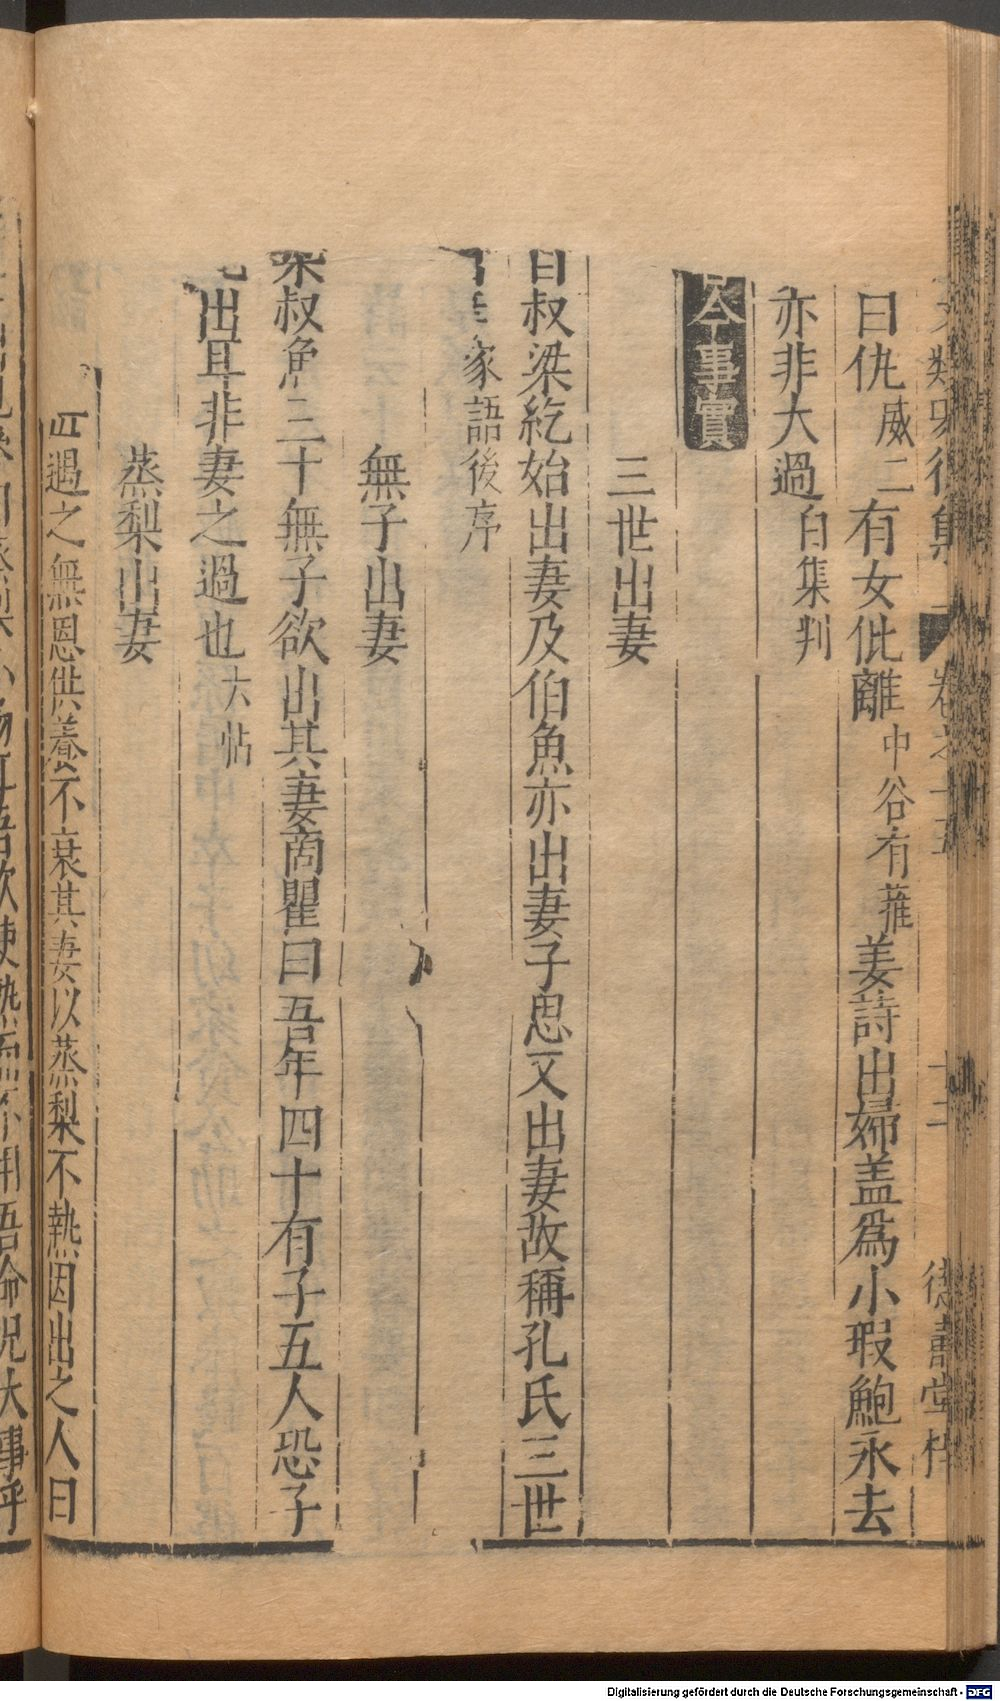 曰仇威二有女仳離中谷有蓷姜詩出婦盖爲小瑕鮑永去
亦非大過白集判
今事實
三世出妻
自叔梁紇始出妻及伯魚亦出妻子思又出妻故稱孔氏三世
家語後序
無子出妻
梁叔魚三十無子欲出其妻商瞿曰吾年四十有子五人恐子
出耳非妻之過也六帖
蒸梨出妻
遇之無恩供養不衰其妻以蒸梨不熱因出之人曰
卷之十五
十二
德壽堂梓
Digitalisierung gefördert durch die Deutsche Forschungsgemeinschaft - DFG